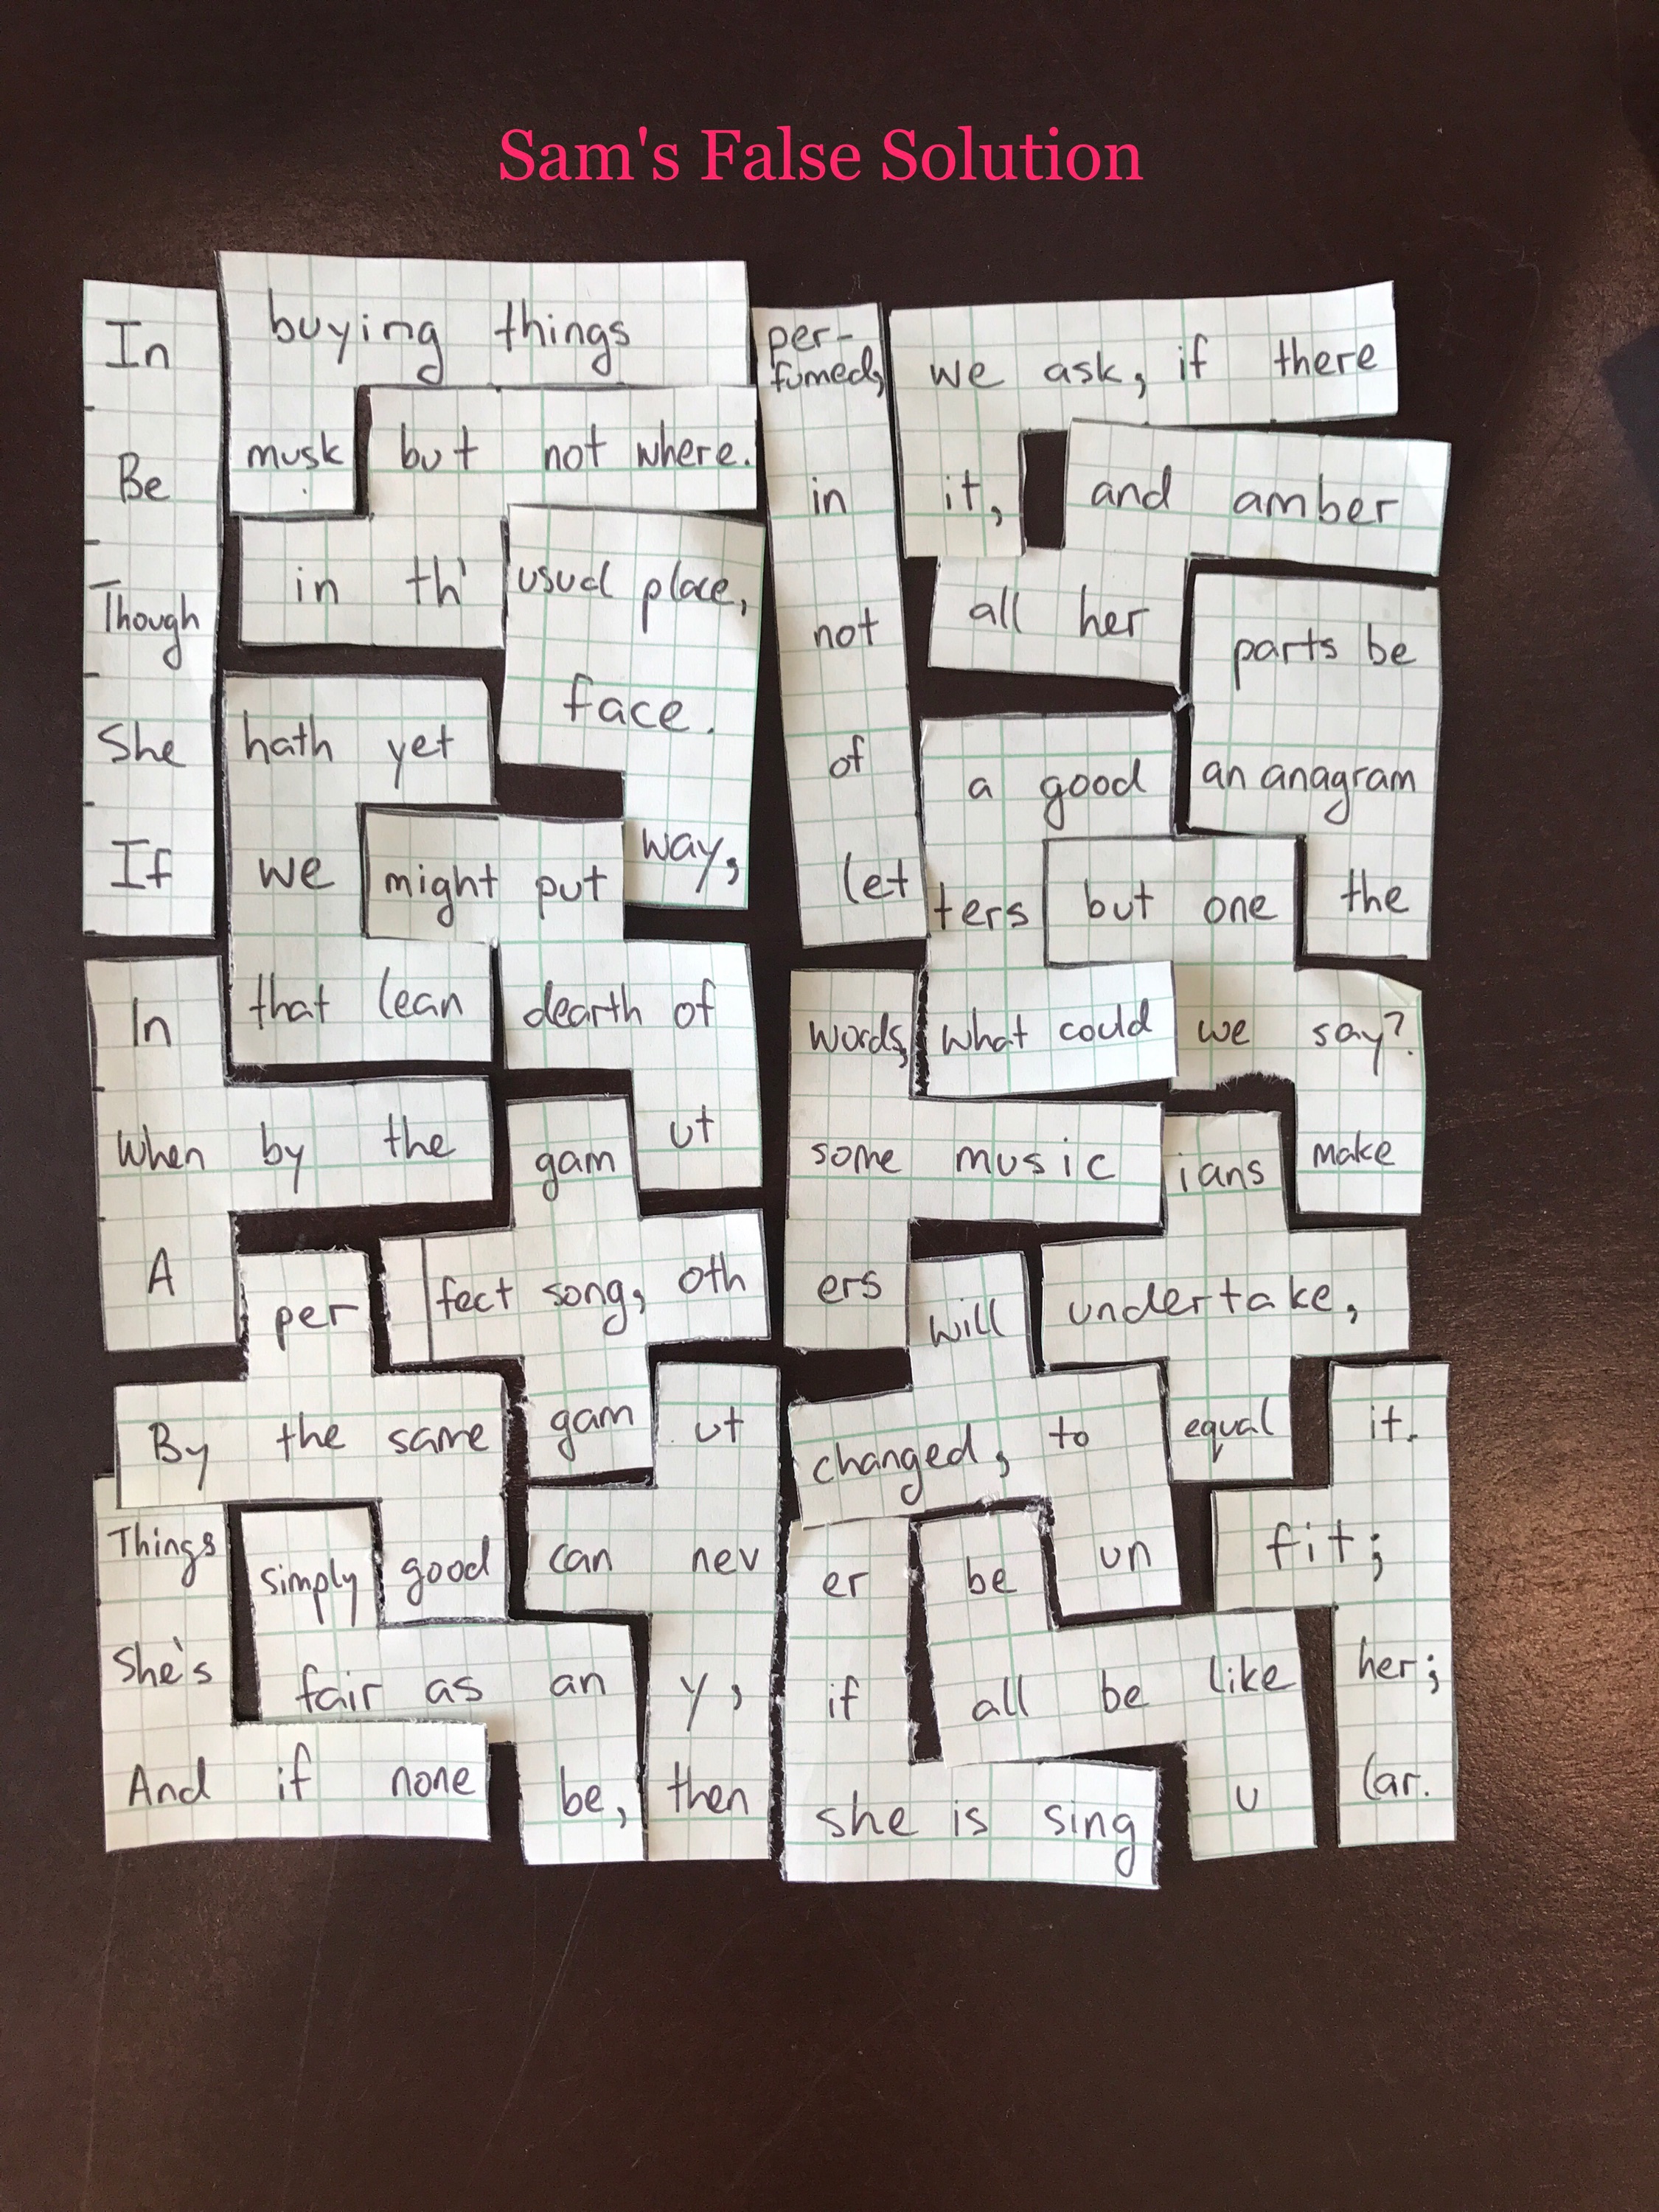 Sam's False Solution
In buying things per-fumed, we ask, if there
Be musk but not where. in it, and amber
Though in th' usual place, not all her parts be
She hath yet face. of a good an anagram
If we might put way, let ters but one the
In that lean dearth of words, what could we say?
When by the gam ut some music ians make
A per fect song, oth ers will undertake,
By the same gam ut changed, to equal it.
Things simply good can nev er be un fit;
She's fair as an y, if all be like her;
And if none be, then she is sing u lar.